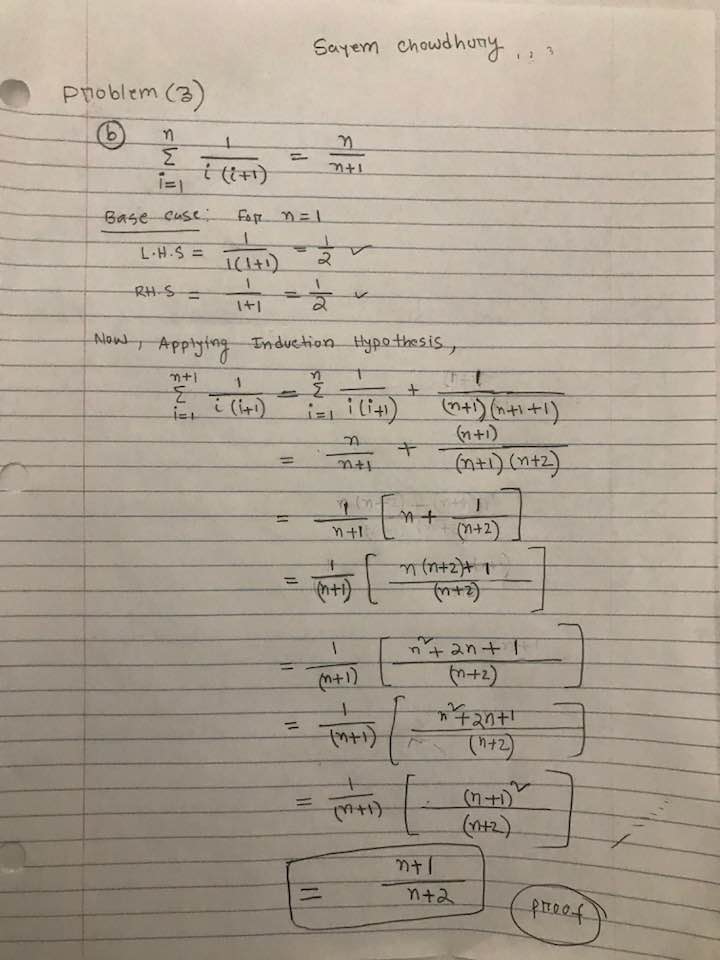 Sayem Chowdhury
Problem (3)
(b) n Σ i=1 1/(i(i+1)) = n/(n+1)
Base case: For n=1
L.H.S = 1/(1(1+1)) = 1/2 ✓
RH.S = 1/(1+1) = 1/2 ✓
Now, Applying Induction Hypothesis,
n+1 Σ i=1 1/(i(i+1)) = n Σ i=1 1/(i(i+1)) + 1/((n+1)(n+1+1))
= n/(n+1) + (n+1)/((n+1)(n+2))
= 1/(n+1) [n + 1/(n+2)]
= 1/(n+1) [(n(n+2)+1)/(n+2)]
= 1/(n+1) [(n²+2n+1)/(n+2)]
= 1/(n+1) [(n²+2n+1)/(n+2)]
= 1/(n+1) [(n+1)²/(n+2)]
= (n+1)/(n+2)
proof